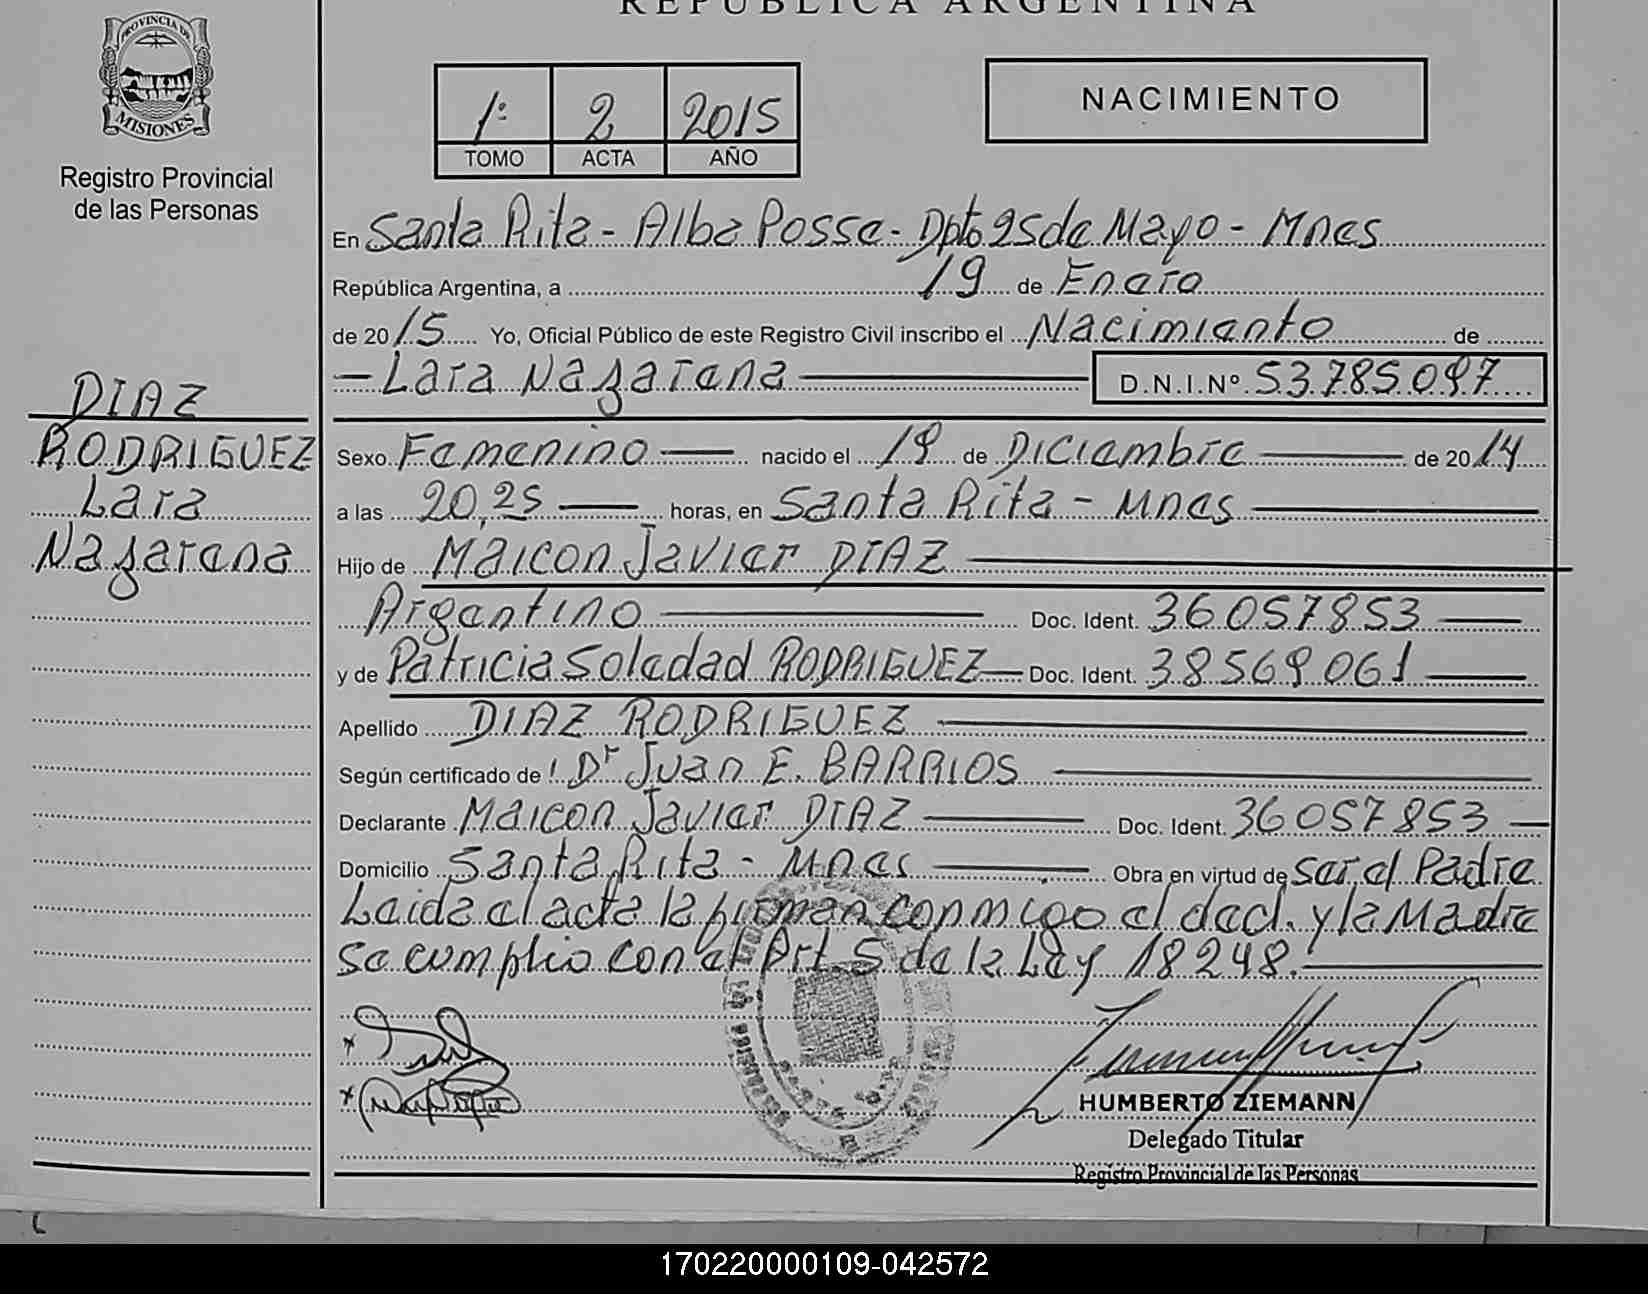 REPUBLICA ARGENTINA
PROVINCIA DE
MISIONES
Registro Provincial
de las Personas
1º 2 2015
TOMO ACTA AÑO
NACIMIENTO
En Santa Rita - Alba Posse - Dpto 25 de Mayo - Mnes
República Argentina, a 19 de Enero
de 2015 Yo, Oficial Público de este Registro Civil inscribo el Nacimiento de
- Lara Nazarena D.N.I.Nº 53.785.097
DIAZ
RODRIGUEZ
Lara
Nazarena
Sexo Femenino nacido el 19 de Diciembre de 2014
a las 20,25 horas, en Santa Rita - Mnes
Hijo de Maicon Javier DIAZ
Argentino Doc. Ident. 36057853
y de Patricia Soledad RODRIGUEZ Doc. Ident. 38569061
Apellido DIAZ RODRIGUEZ
Según certificado de Dr Juan E. BARRIOS
Declarante Maicon Javier DIAZ Doc. Ident. 36057853
Domicilio Santa Rita - Mnes Obra en virtud de ser el Padre
Leida el acta la firman conmigo el decl. y la Madre
se cumplio con el Art 5 de la Ley 18248.
HUMBERTO ZIEMANN
Delegado Titular
Registro Provincial de las Personas
170220000109-042572